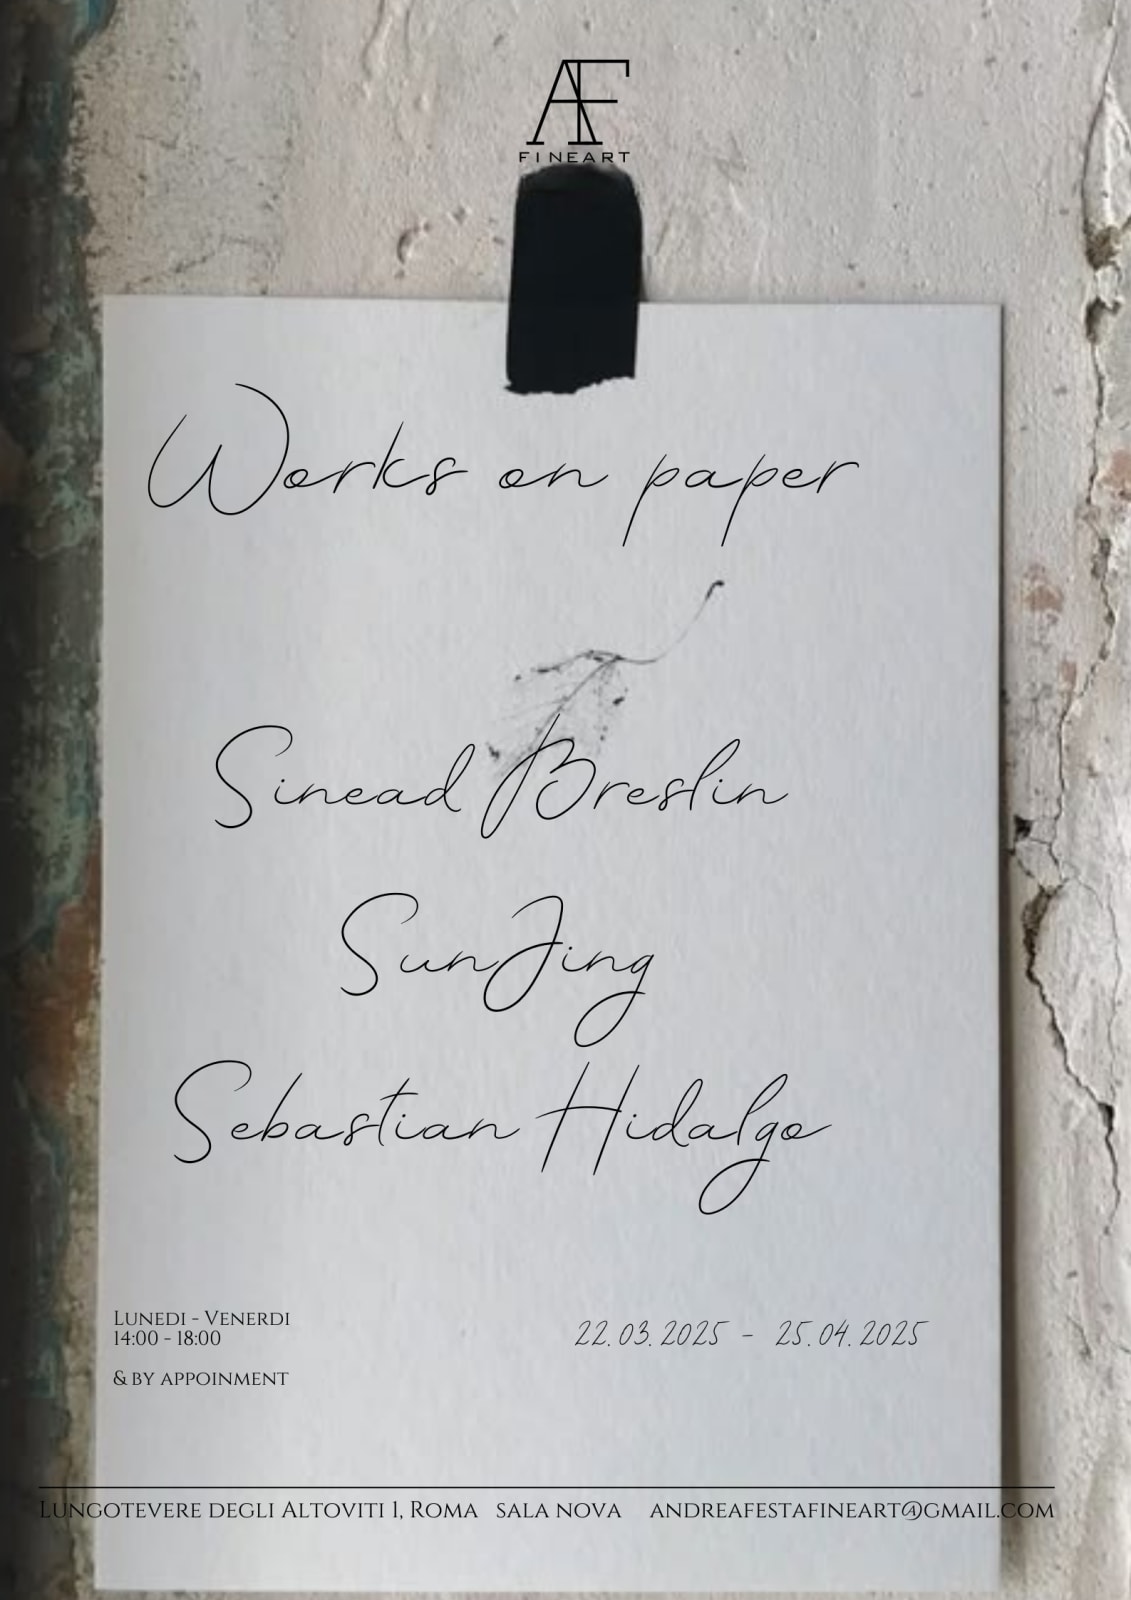 AF
FINEART
Works on paper
Sinead Breslin
SunJing
Sebastian Hidalgo
Lunedi - Venerdi
14:00 - 18:00
& by appoinment
22.03.2025 - 25.04.2025
Lungotevere degli Altoviti 1, Roma sala nova andreafestafineart@gmail.com